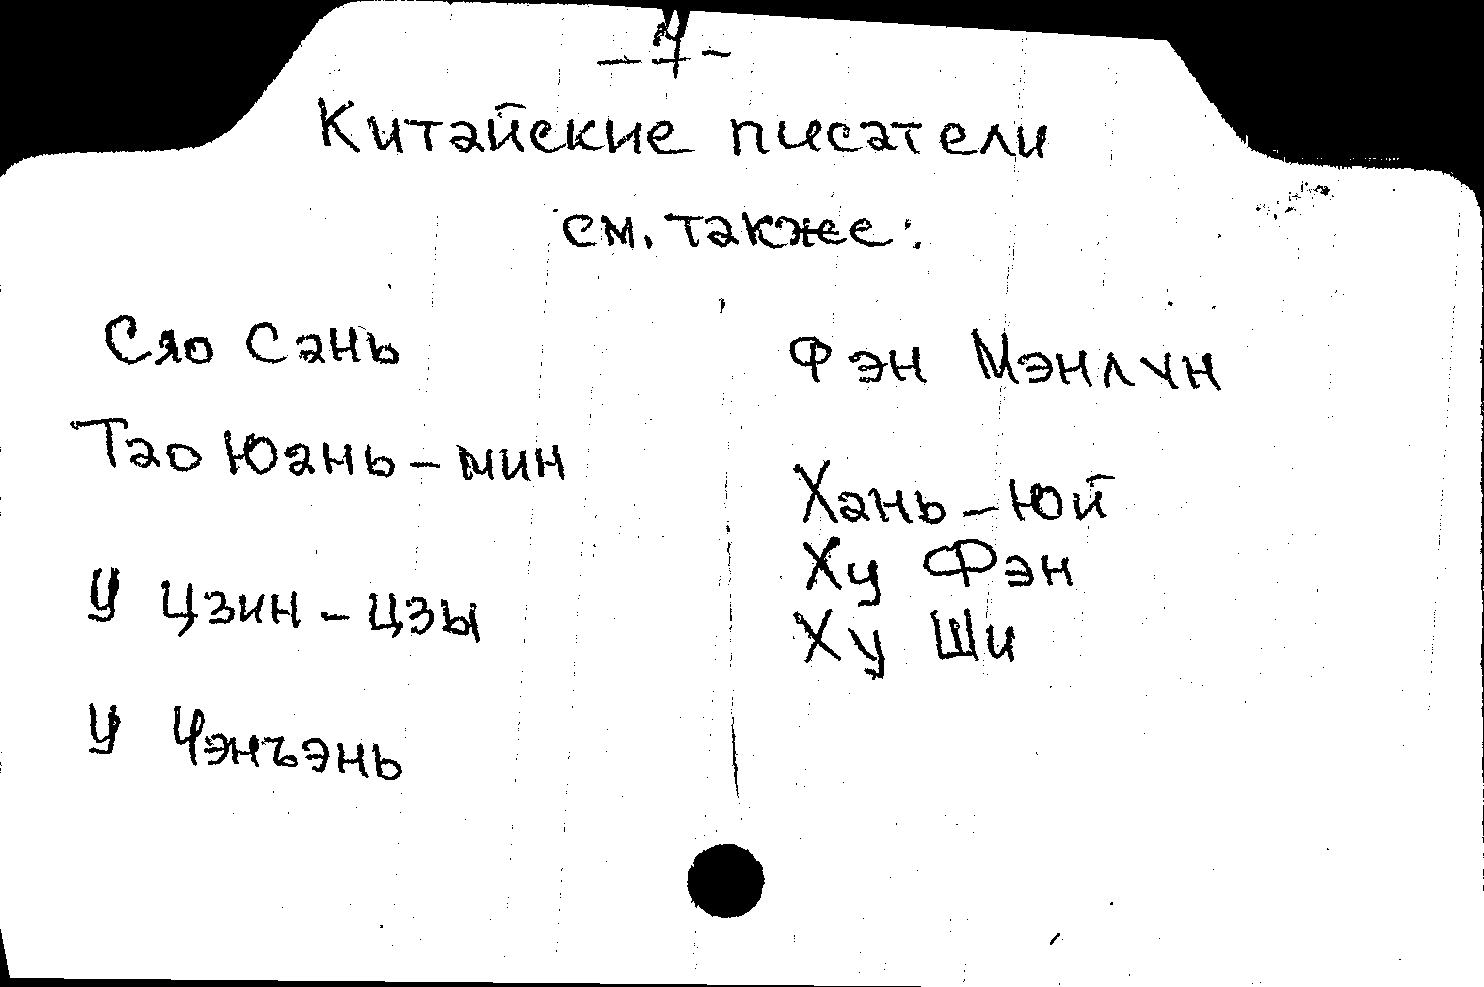 Китайские писатели
см. также:
Сяо Сань
Тао Юань-мин
У Цзин-цзы
У Чэнъэнь
Фэн Мэнлун
Хань-юй
Ху Фэн
Ху Ши